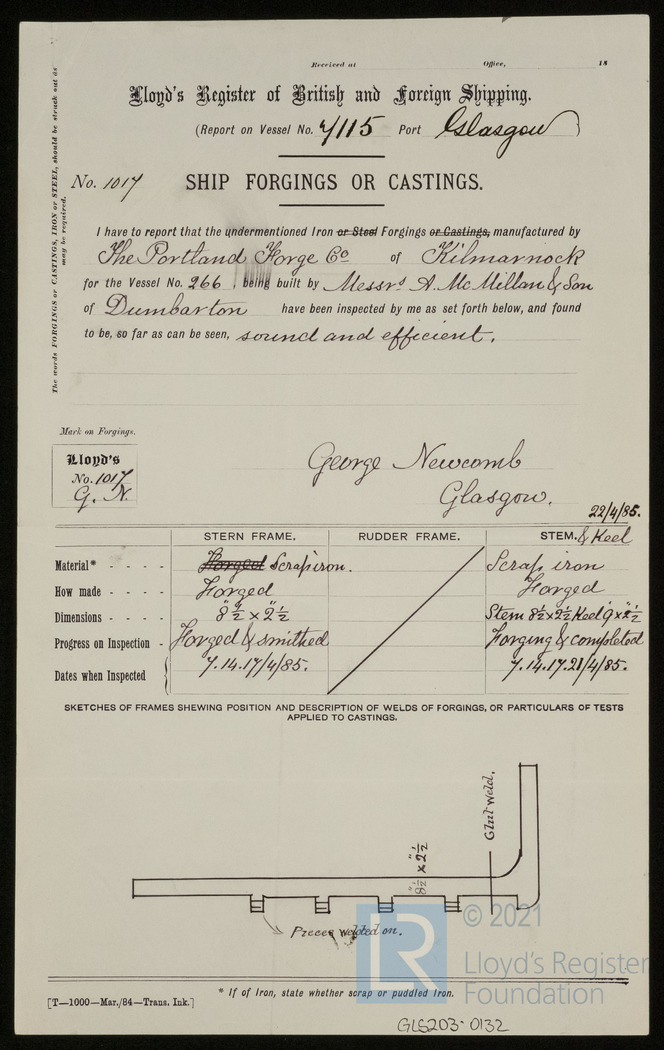 Received at Office, 18
Lloyd's Register of British and Foreign Shipping.
(Report on Vessel No. 7/115 Port Glasgow)
No. 1017 SHIP FORGINGS OR CASTINGS.
The words FORGINGS or CASTINGS, IRON or STEEL, should be struck out as
may be required.
I have to report that the undermentioned Iron or Steel Forgings or Castings, manufactured by
The Portland Forge Co of Kilmarnock
for the Vessel No. 266, being built by Messrs A. McMillan & Son
of Dumbarton have been inspected by me as set forth below, and found
to be, so far as can be seen, sound and efficient.
Mark on Forgings.
Lloyd's
No. 1017
G. N.
George Newcomb
Glasgow.
22/4/85.
STERN FRAME. RUDDER FRAME. STEM. & Keel
Material* - - - - Forged Scrap iron. Scrap iron
How made - - - - Forged Forged
Dimensions - - - - 8½" x 2½" Stem 8½ x 2½ Keel 9 x 2½
Progress on Inspection - Forged & smithed Forging & completed
Dates when Inspected 7.14.17/4/85. 7.14.17.21/4/85.
SKETCHES OF FRAMES SHEWING POSITION AND DESCRIPTION OF WELDS OF FORGINGS, OR PARTICULARS OF TESTS
APPLIED TO CASTINGS.
Glut weld.
8½" x 2½"
Pieces welded on.
LR © 2021
Lloyd's Register
Foundation
* If of Iron, state whether scrap or puddled Iron.
[T—1000—Mar./84—Trans. Ink.]
GLS203-0132